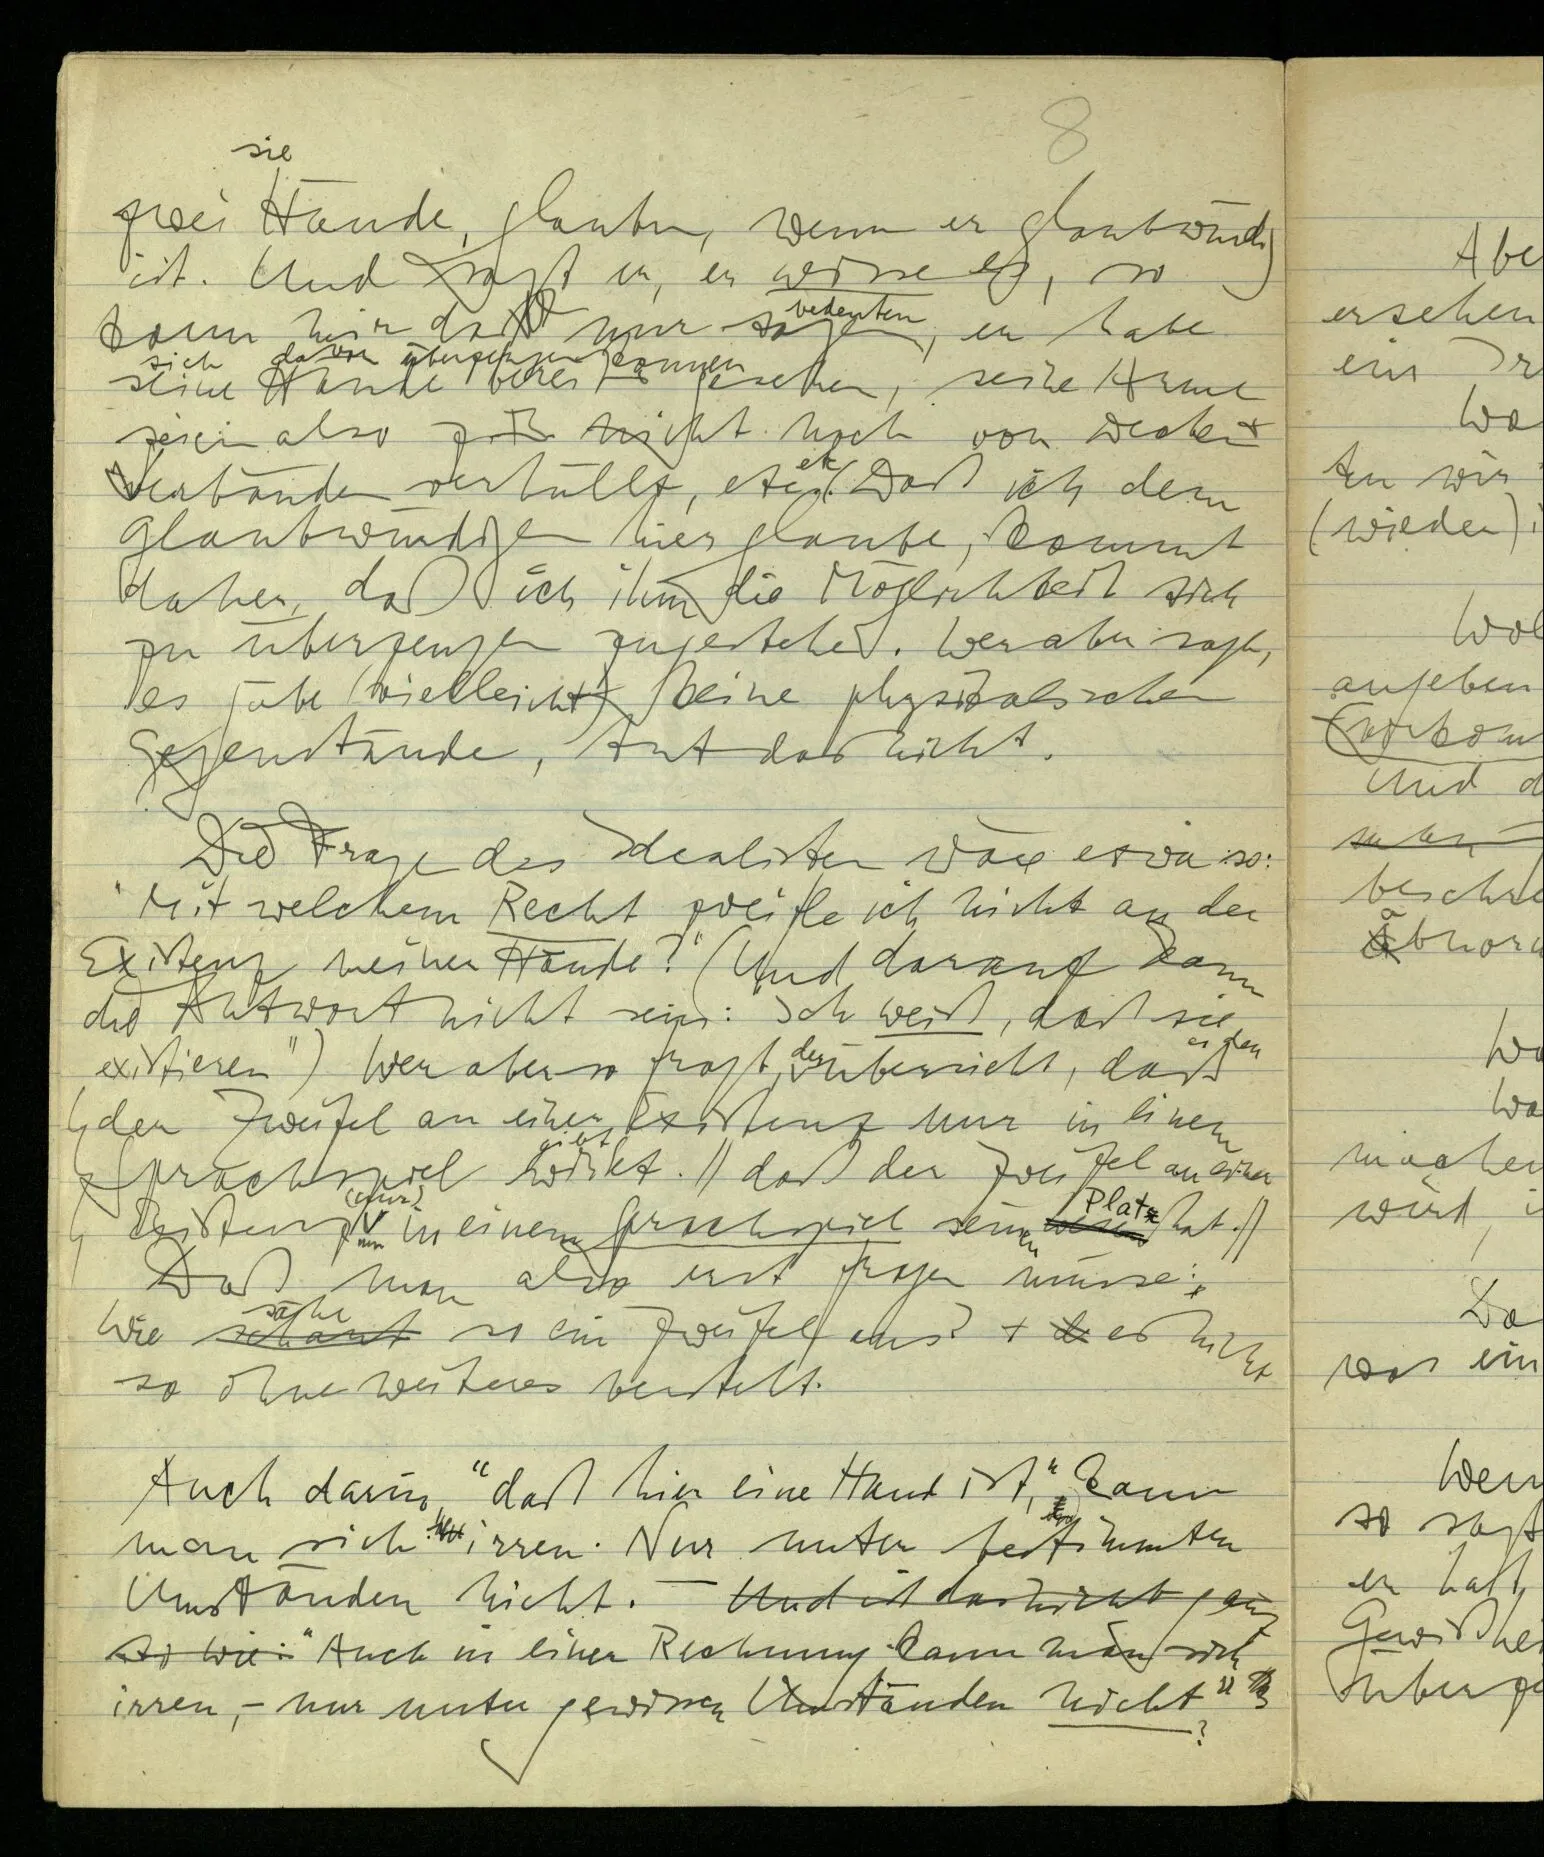 8
sie
zwei Hände, glauben, wenn er glaubwürdig
ist. Und sagt er, er wisse es, so
kann hier das nur sagen, er habe
bedeuten
sich davon überzeugen können
seine Hände bereits gesehen, seine Arme
seien also nicht noch von Decken +
Verbänden verhüllt, etc. etc. Daß ich dem
Glaubwürdigen hier glaube, kommt
daher, daß ich ihm die Möglichkeit sich
zu überzeugen zugestehe. Wer aber sagt,
es gäbe (vielleicht) keine physikalischen
Gegenstände, tut das nicht.
Die Frage des Idealisten wäre etwa so:
"Mit welchem Recht zweifle ich nicht an der
Existenz meiner Hände?" (Und darauf kann
die Antwort nicht sein: "Ich weiß, daß sie
existieren") Wer aber so fragt, der übersieht, daß
es den
der Zweifel an einer Existenz nur in einem
gibt
Sprachspiel wirkt. // daß der Zweifel an einer
Existenz (nur) in einem Sprachspiel seinen Platz hat. //
Daß man also erst fragen müsse:
sähe
Wie schaut so ein Zweifel aus? + es nicht
so ohne weiteres versteht.
Auch darin, "daß hier eine Hand ist," kann
man sich irren. Nur unter bestimmten
Umständen nicht. – Und ist das nicht ganz
so wie: "Auch in einer Rechnung kann man sich
irren, – nur unter gewissen Umständen nicht"
?
Abe
ersehen
ein Ir
Wa
ten wir
(wieder) i
Wol
angeben
Und d
beschre
Abnorm
Wa
Wa
machen
wird, i
Da
was ein
Wen
so sagt
er hat,
Gewißhei
überze